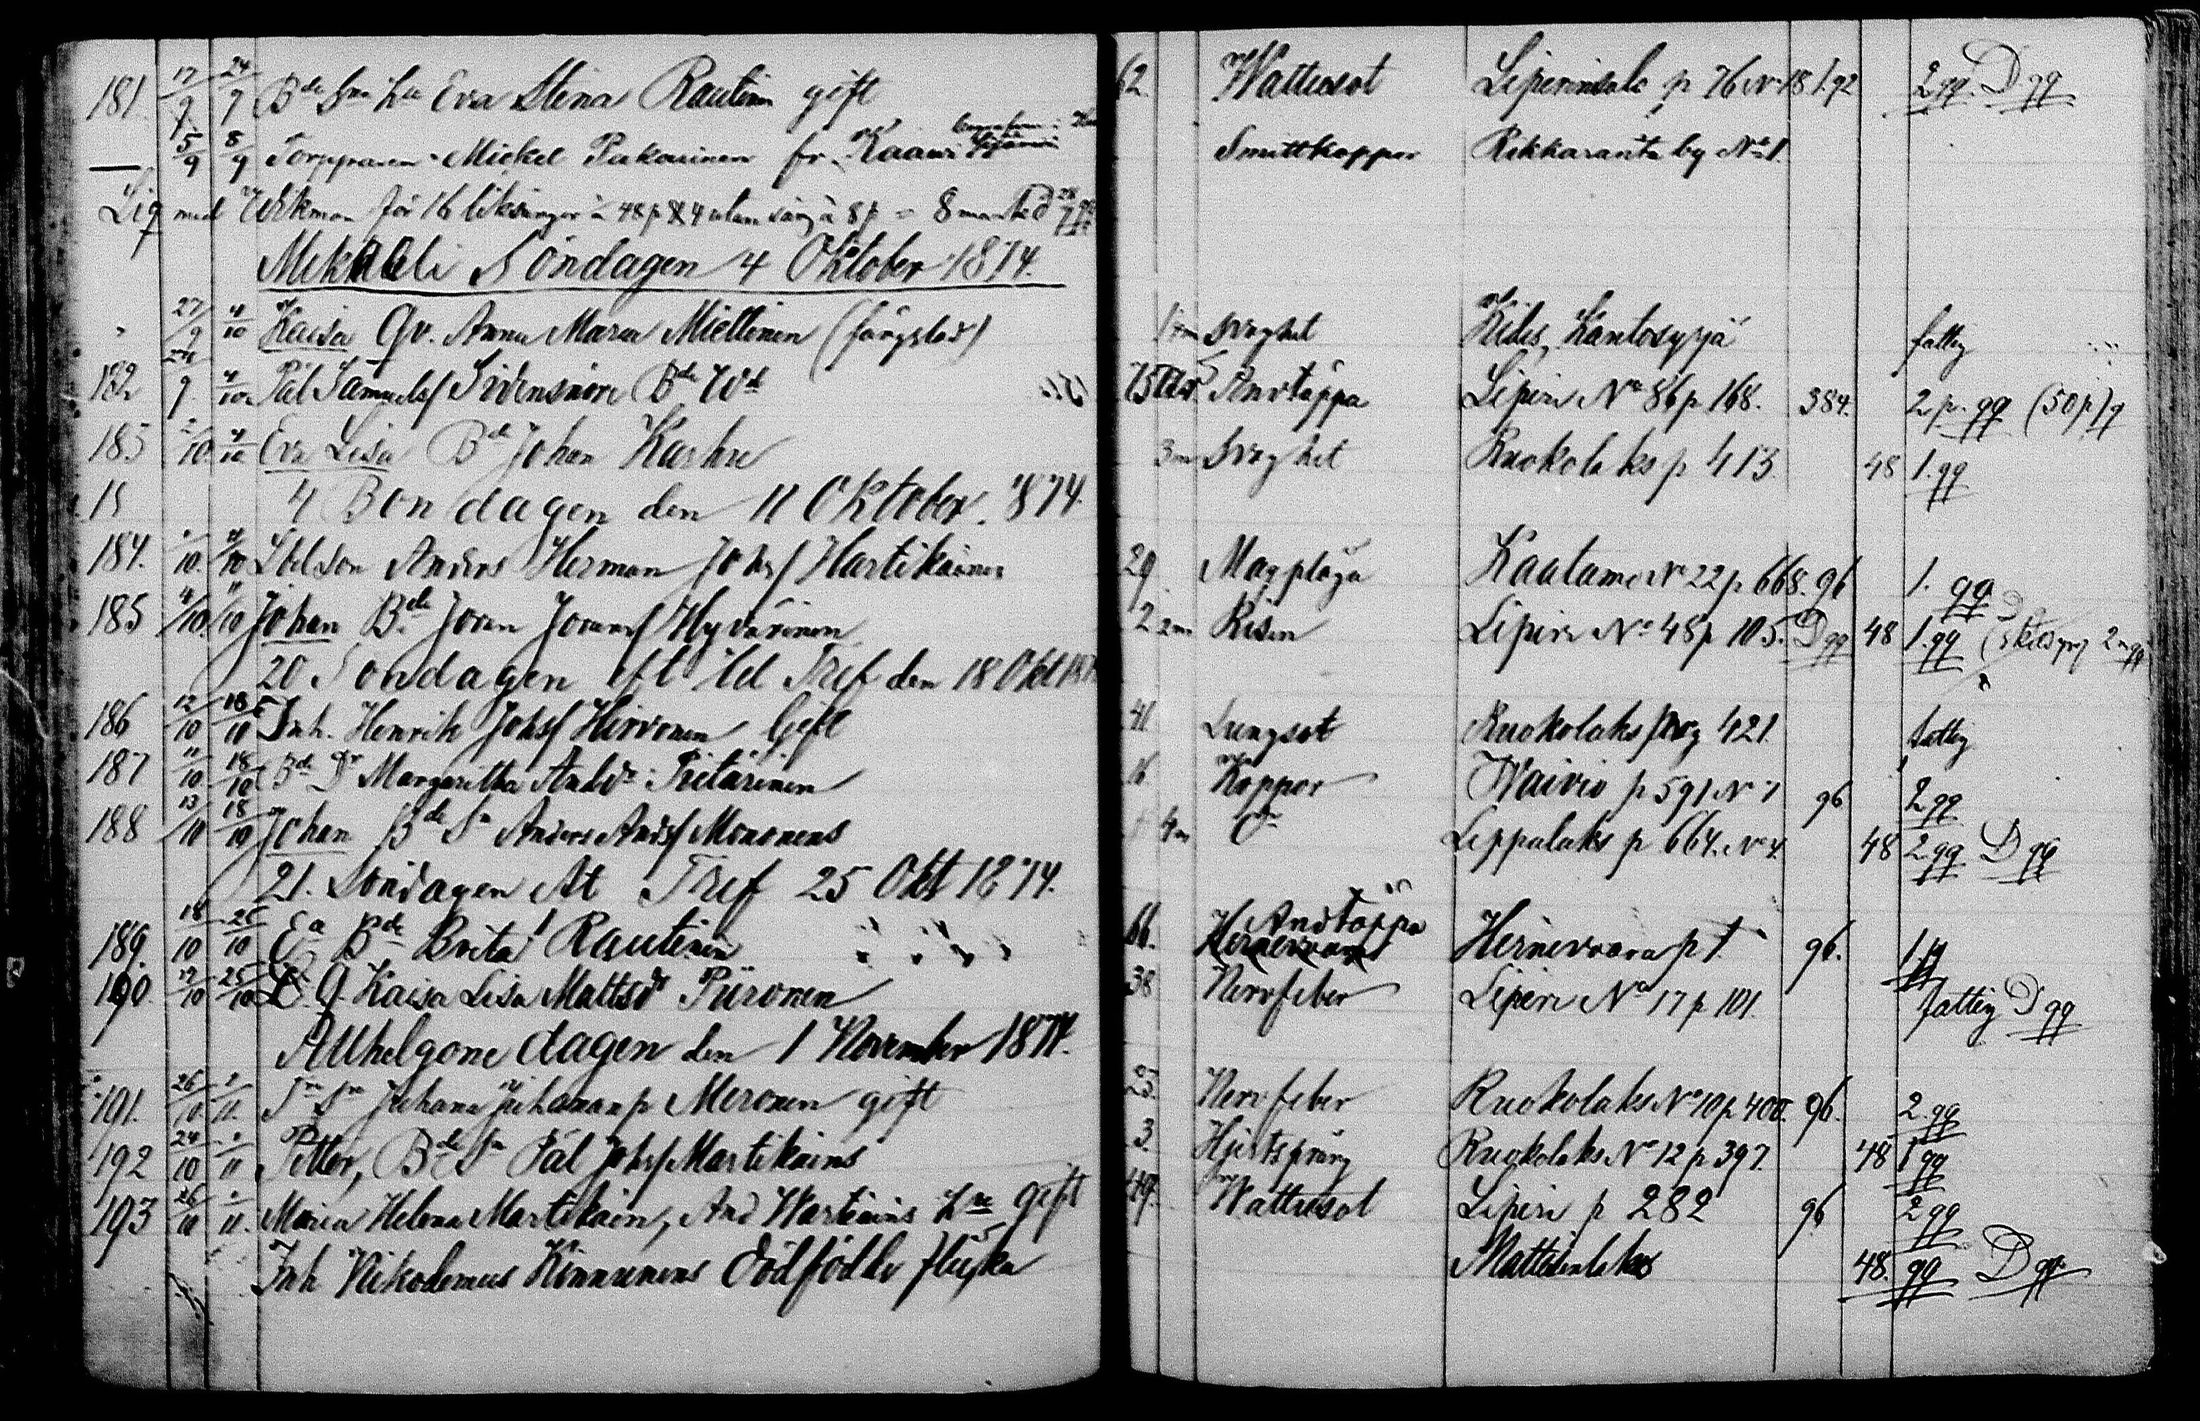 181. 17/9 24/9 Bde Sns Hu Eva Stina Rautinen gift 62. Wattusot Liperinsalo p 76 No 18 1.92 2 qq D qq
5/9 8/9 Torpparen Mickel Pakarinen fr. Kaavi Smittkoppor Rikkaranta by No 1.
Liq med Wikman för 16 liksånger à 48 p & 4 utan sång à 8 p = 8 mark d 28/9
Mikaeli Söndagen 4 Oktober 1874.
27/9 4/10 Kaisa Qv. Anna Maria Miettinen (fängslad) 1 m Svaghet Kitis, Kantosyrjä fattig
182 24/9 4/10 Pål Samuelsf Sidensnöre Bde Wd 75 Andtäppa Liperi No 86 p 168. 384. 2 p. qq (50 p) q
183 2/10 4/10 Eva Lisa Bde Johan Karhu 3 m Svaghet Ruokolaks p 413 48 1. qq
Söndagen den 11 Oktober 1874.
184. /10. 11/10 Lösl Son Anders Herman Johsf Hartikainen 29 Magplåga Kaatamo No 22 p 668. 96 1. qq
185 4/10. 11/10 Johan Bde Joran Joransf Hyvärinen 2 2m Risen Liperi No 48 p 105. D qq 48 1. qq
20 Söndagen eft. Hel Tref den 18 Okt 1874
186 12/10 18/10 Inh. Henrik Johsf Hirvonen Gift 41 Lungsot Ruokolaks pag 421. fattig
187 11/10 18/10 Bde Dr Margaritha Andsdr Pietarinen 16 Koppor Waivio p 591 No 7 96 2 qq
188 13/10 18/10 Johan Bde Sn Anders Andsf Mononens 4 m Do Leppälaks p 664. No 4. 48 2 qq D qq
21. Söndagen Aft Tref 25 Okt 1874.
189. 18/10 25/10 Ea Bde Brita Rautinen 66. Andtäppa Hernevaara Hernevaara p 1. 96. 1 q
190 17/10 25/10 L. Q. Kaisa Lisa Mattsdr Piironen 38 Nervfeber Liperi No 17 p 101. fattig D qq
Allhelgone dagen den 1 November 1874.
191. 26/10 1/11. Tn Sn Juhana Juhananp Meronen gift 23 Nervfeber Ruokolaks No 10 p 400. 96. 2 qq
192 24/10 1/11 Petter, Bde Sn Pål Johsf Martikains 3. Hjertspräng Ruokolaks No 12 p 397 48 1 qq
193 26/10 1/11. Maria Helena Martikain, And Wartiains Hu gift 49. Wattusot Liperi p 282 96 2 qq
Inh Nikodemus Kinnunens Dödfödde flicka Mattisenlaks 48. qq D qq